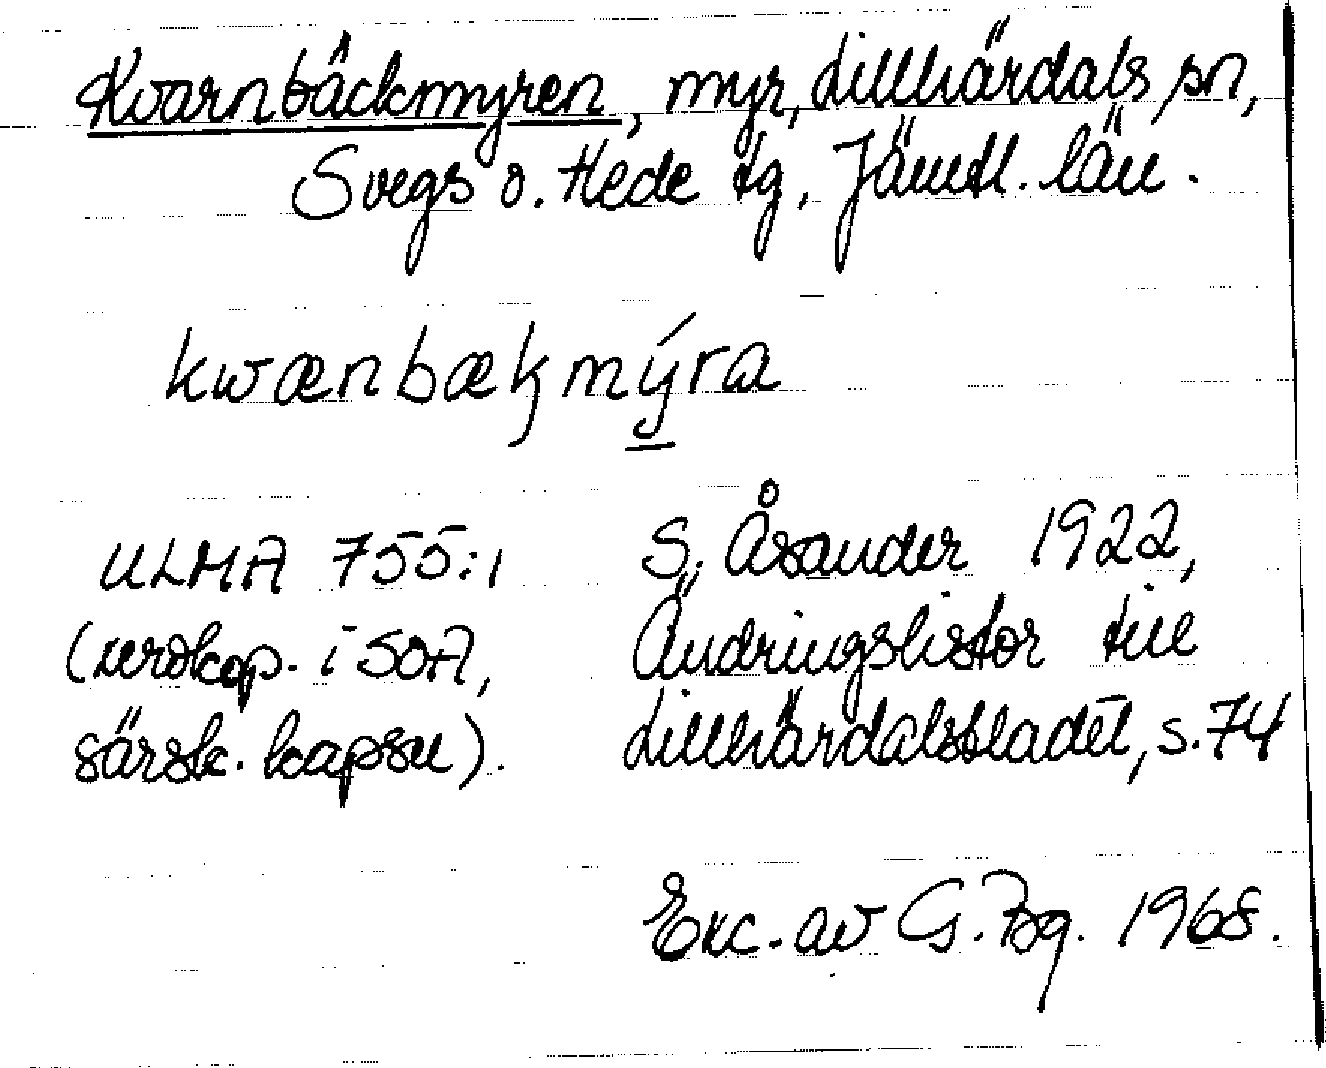 Kvarnbäckmyren, myr, Lillhärdals sn,
Svegs o. Hede tg, Jämtl. län.
kwænbækmýra
ULMA 755:1 S. Åsander 1922,
(xerokop. i SOA, Ändringslistor till
särsk. kapsel). Lillhärdalsbladet, s. 74
Exc. av G. Bq. 1968.